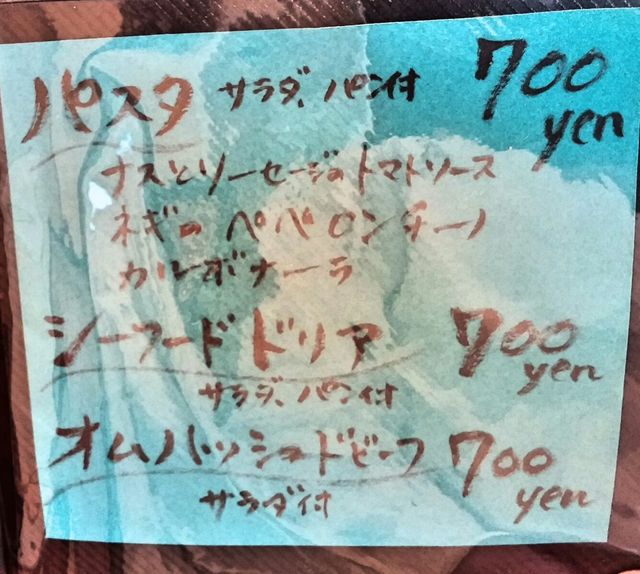 パスタ サラダ、パン付 700 yen
ナスとソーセージのトマトソース
ネギのペペロンチーノ
カルボナーラ
シーフードドリア 700 yen
サラダ、パン付
オムハッシュドビーフ 700 yen
サラダ付